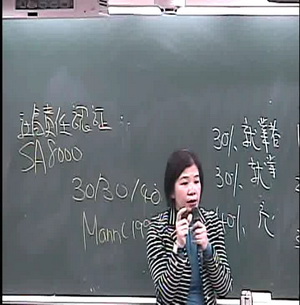 社會責任認証
SA8000
30/30/40
Mann(199
30% 就業
30% 就業
40%